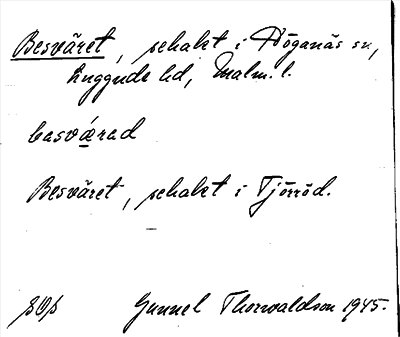 Besväret, schakt i Höganäs sn,
Luggude hd, Malm. l.
basvǽrad
Besväret, schakt i Tjörröd.
Gunnel Thorwaldson 1945.